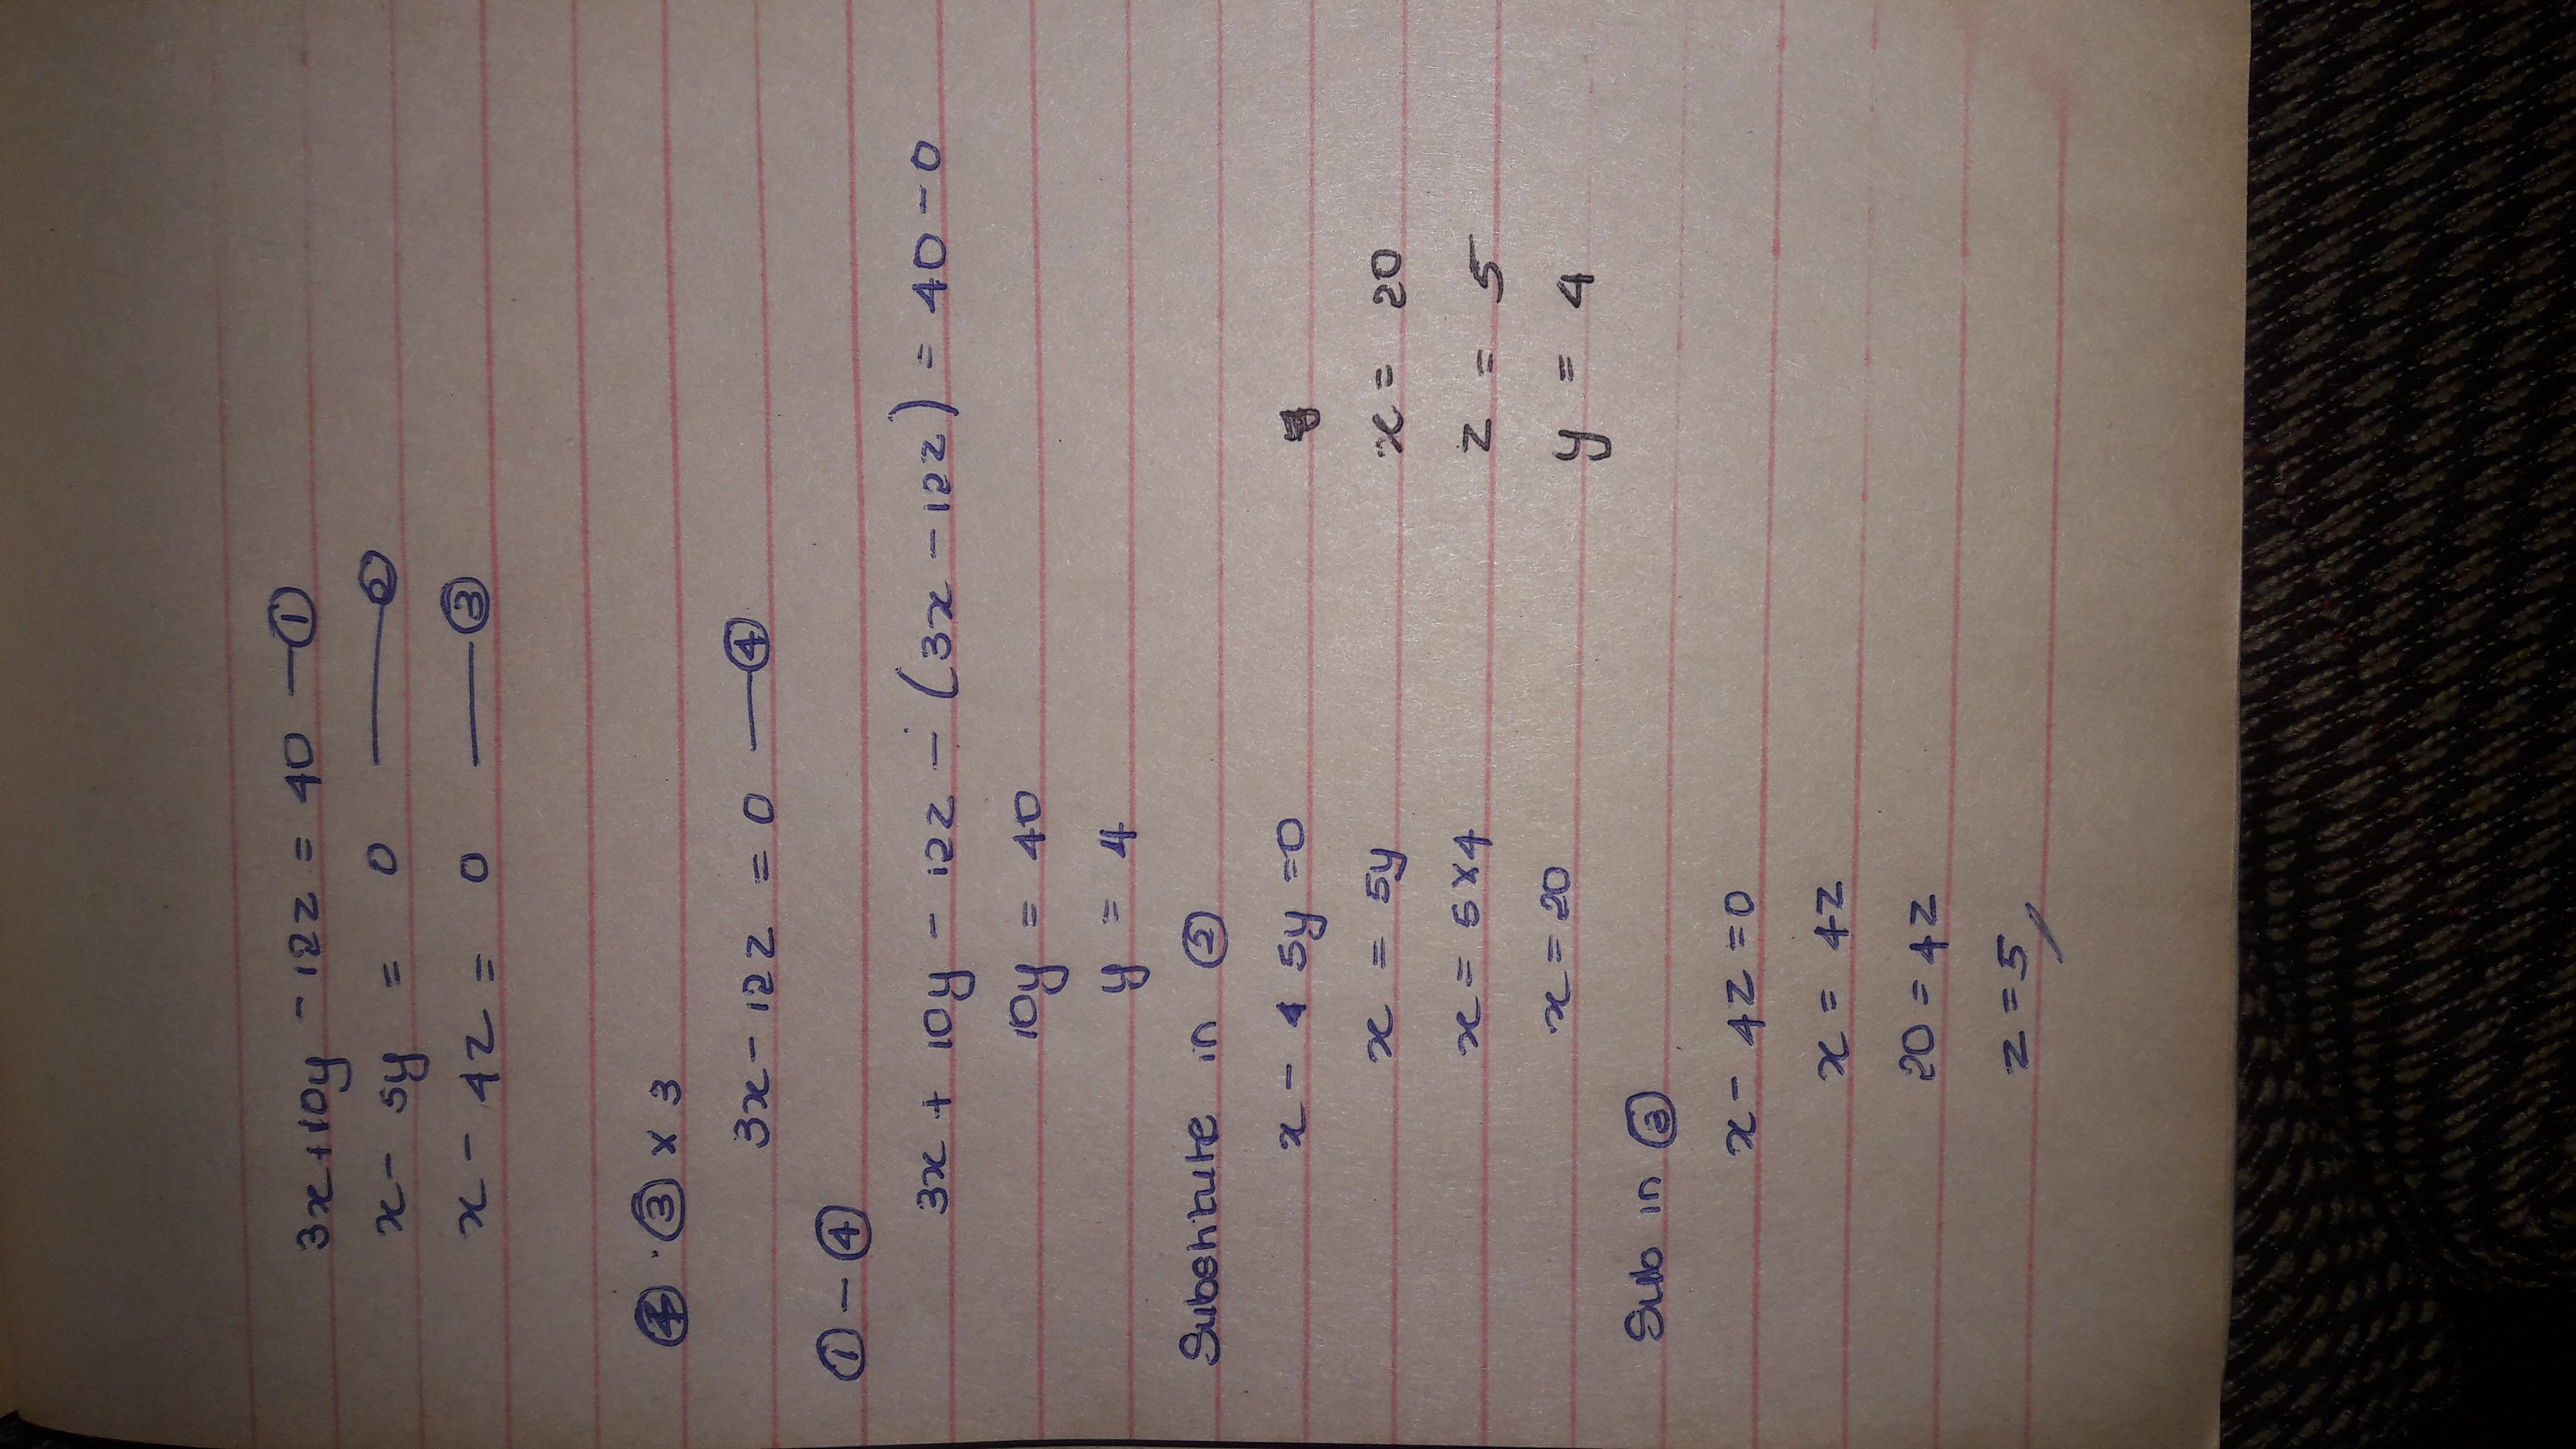 3x+10y - 12z = 40 — ①
x - 5y = 0 — ②
x - 4z = 0 — ③
③ x 3
3x - 12z = 0 — ④
① - ④
3x + 10y - 12z - (3x - 12z) = 40 - 0
10y = 40
y = 4
Substitute in ②
x - 5y = 0
x = 5y x = 20
x = 5 x 4 z = 5
x = 20 y = 4
Sub in ③
x - 4z = 0
x = 4z
20 = 4z
z = 5